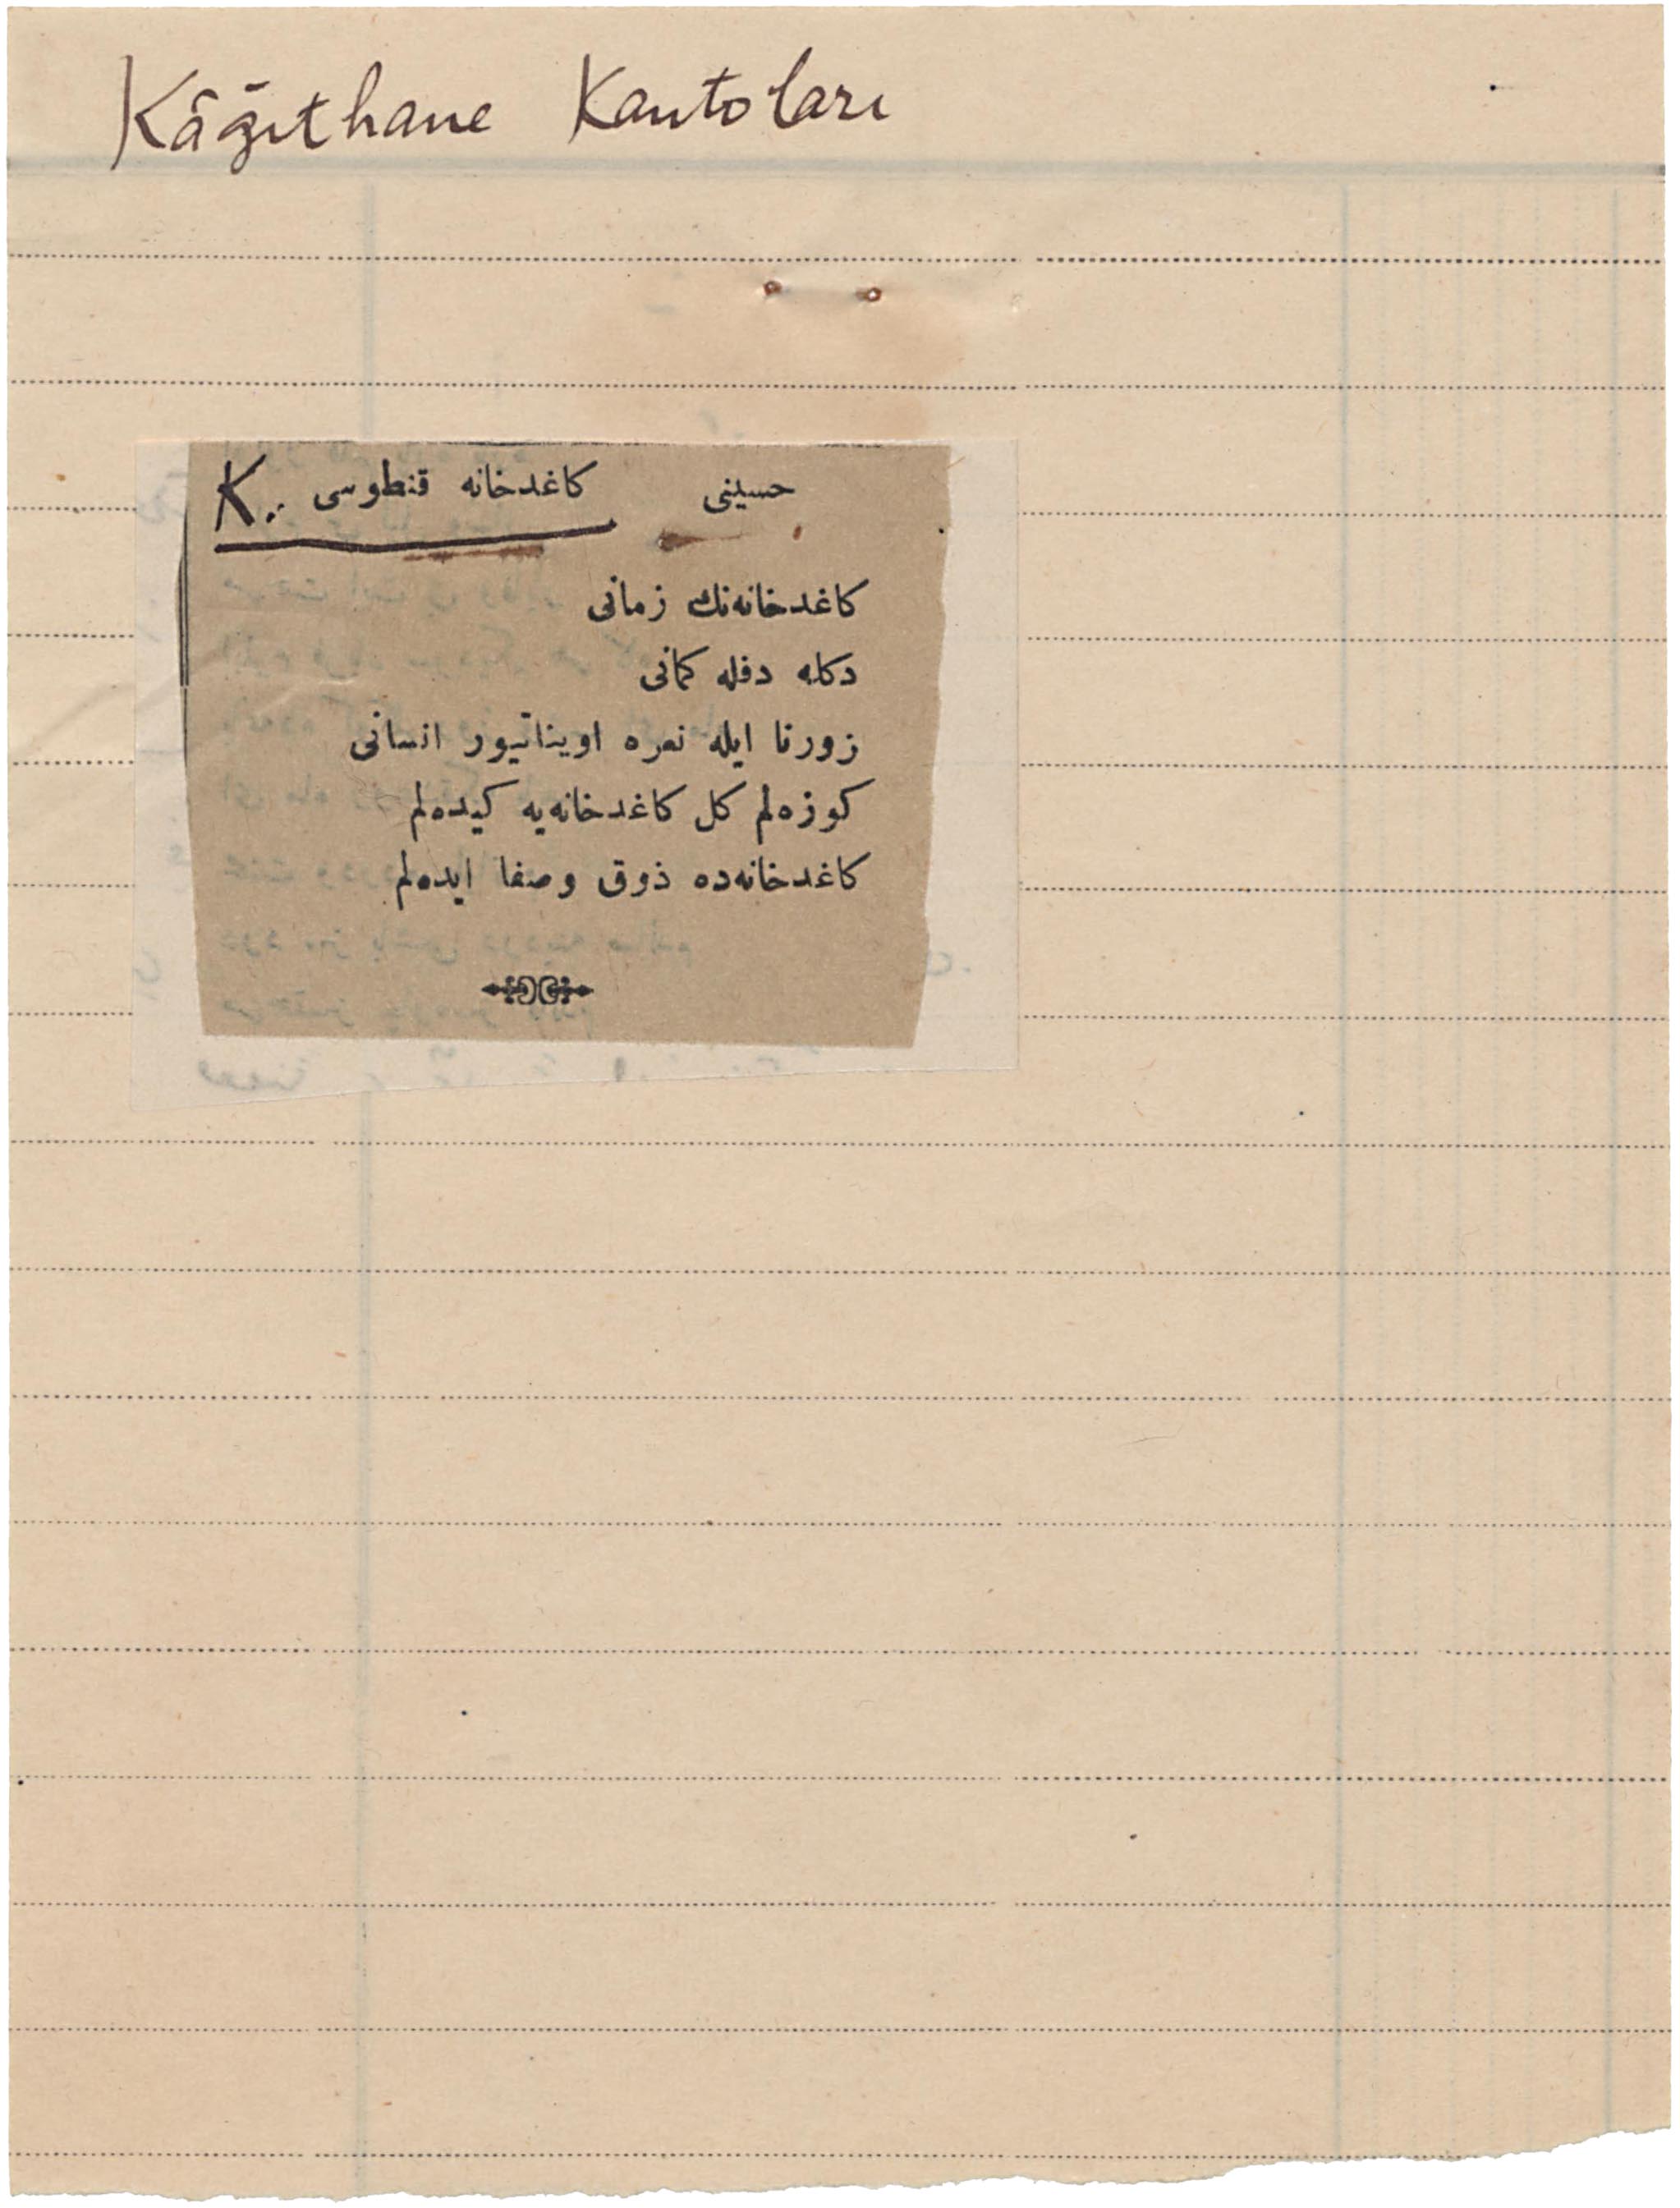 Kâğıthane Kantoları
حسینی كاغدخانه قنطوسی K..
كاغدخانه‌نك زمانی
دكله دفله كمانی
زورنا ایله نعره اویناتیور انسانی
كوزه‌لم كل كاغدخانه‌یه كیده‌لم
كاغدخانه‌ده ذوق وصفا ایده‌لم